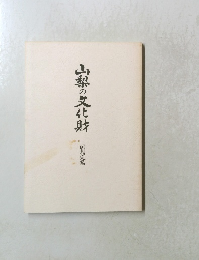 山梨の文化財